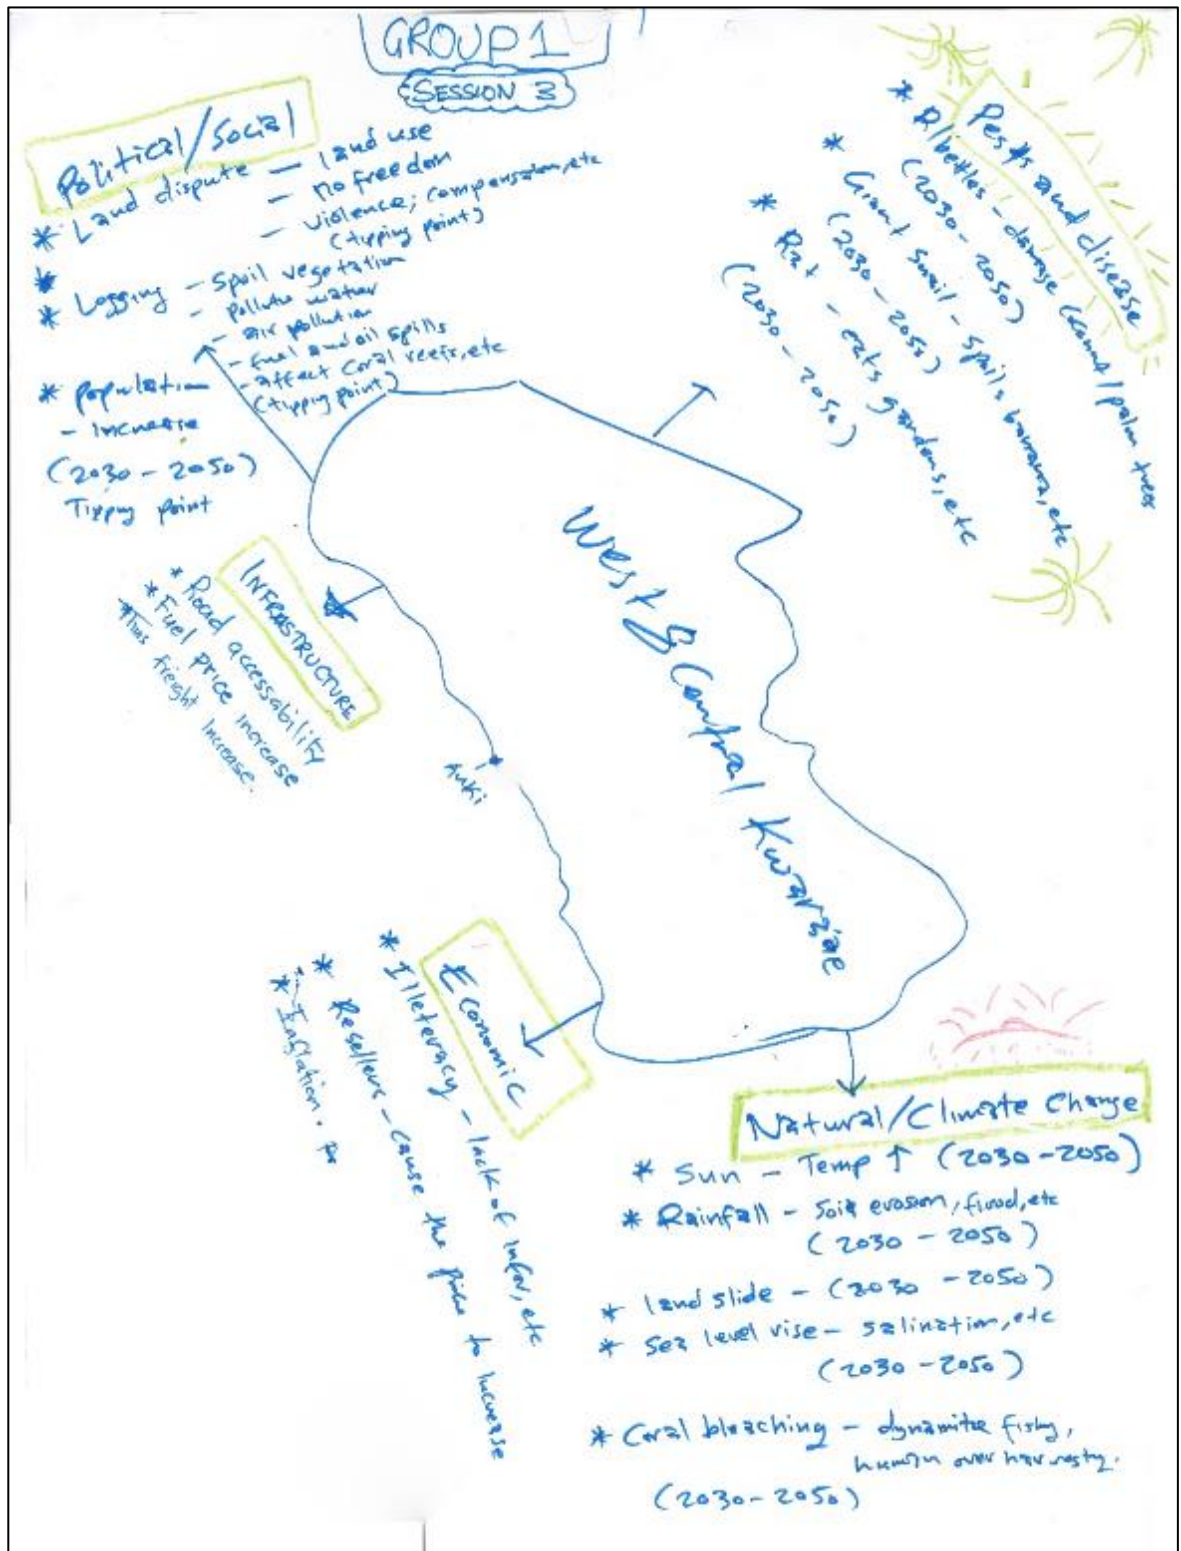 GROUP 1
SESSION 3
Political/Social
* Land dispute - land use
- no freedom
- Violence, compensation, etc
(tipping point)
*
* Logging - Spoil vegetation
- Pollute water
- air pollution
- fuel and oil spills
- affect Coral reefs, etc
(tipping point)
* Population
- increase
(2030 - 2050)
Tipping point
Pests and disease
* R/bettles - damage coconut/palm trees
(2030 - 2050)
* Giant Snail - spoils banana, etc
(2030 - 2050)
* Rat - eats gardens, etc
(2030 - 2050)
INFRASTRUCTURE
* Road accessability
* Fuel price increase
* Thus freight increase.
West & Central Kwara'ae
AUKI
Economic
* Illeteracy - lack of infor, etc
* Resellers - cause the price to increase
* Inflation.
Natural/Climate Change
* Sun - Temp ↑ (2030 - 2050)
* Rainfall - Soil erosion, flood, etc
(2030 - 2050)
* land slide - (2030 - 2050)
* Sea level rise - salination, etc
(2030 - 2050)
* Coral bleaching - dynamite fishing,
human over harvesting.
(2030 - 2050)